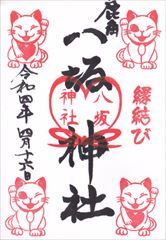 縁結び
八坂神社
八坂
神社
令和四年四月十六日